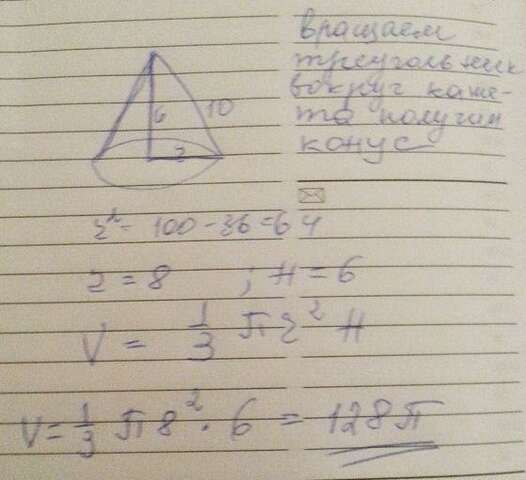 вращаем
треугольник
вокруг кате-
та получим
конус
6
10
r
r² = 100 - 36 = 64
r = 8 ; H = 6
V = 1/3 π r² H
V = 1/3 π 8² · 6 = 128π